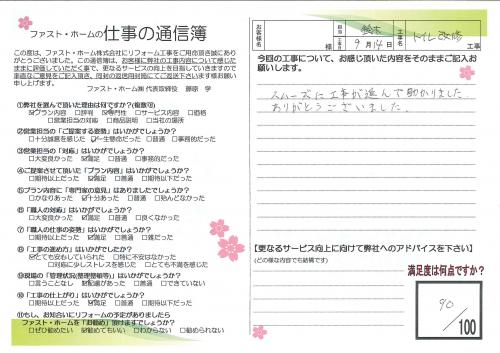 ファスト・ホームの仕事の通信簿
この度は、ファスト・ホーム株式会社にリフォーム工事をご用命頂き誠にあり
がとうございました。この通信簿は、お客様に弊社の工事内容について感じた
ままに評価していただく事で、更なるサービスの向上を目指していきますので
率直なご意見をご記入頂き、同封の返信用封筒にてご返送下さいます様お願い
申し上げます。
ファスト・ホーム㈱ 代表取締役 藤原 学
①弊社を選んで頂いた理由は何ですか？(複数可)
☑プラン内容 □評判 ☑専門性 □サービス内容 □価格
□営業担当の対応 □商品説明 □当社の場所
②営業担当の「ご提案する姿勢」はいかがでしょうか？
□十分誠意を感じた ☑一生懸命だった □普通 □事務的だった
③営業担当の「対応」はいかがでしょうか？
□大変良かった ☑満足 □普通 □事務的だった
④ご提案させて頂いた「プラン内容」はいかがでしょうか？
□期待以上だった ☑満足 □普通 □期待以下だった
⑤プラン内容に「専門家の意見」はありましたでしょうか？
□かなりあった ☑十分あった □普通 □殆んどなかった
⑥「職人の対応」はいかがでしょうか？
□大変良かった ☑満足 □普通 □良くなかった
⑦「職人の仕事の姿勢」はいかがでしょうか？
□期待以上だった ☑満足 □普通 □雑だった
⑧「工事の進め方」はいかがでしたか？
☑とても安心していられた □特に不安はなかった
□対応に少しストレスを感じた □とても不満を感じた
⑨現場の「管理状況(整理整頓等)」はいかがでしょうか？
□言うことなし ☑配慮があった □普通 □できていない
⑩「工事の仕上がり」はいかがでしょうか？
□期待以上だった ☑満足 □普通 □期待以下だった
⑪もし、お知合いにリフォームの予定がありましたら
ファスト・ホームを「お勧め」頂けますでしょうか？
□ぜひ勧めたい ☑勧めてもいい □わからない □勧められない
お客様名 鈴木 様
工事完了日 9月14日
工事名 トイレ改修
今回の工事について、お感じ頂いた内容をそのままご記入お
願いします。
スムーズに工事が進んで助かりました。
ありがとうございました。
【更なるサービス向上に向けて弊社へのアドバイスを下さい】
(どの様な内容でも結構です)
満足度は何点ですか？
90
/100